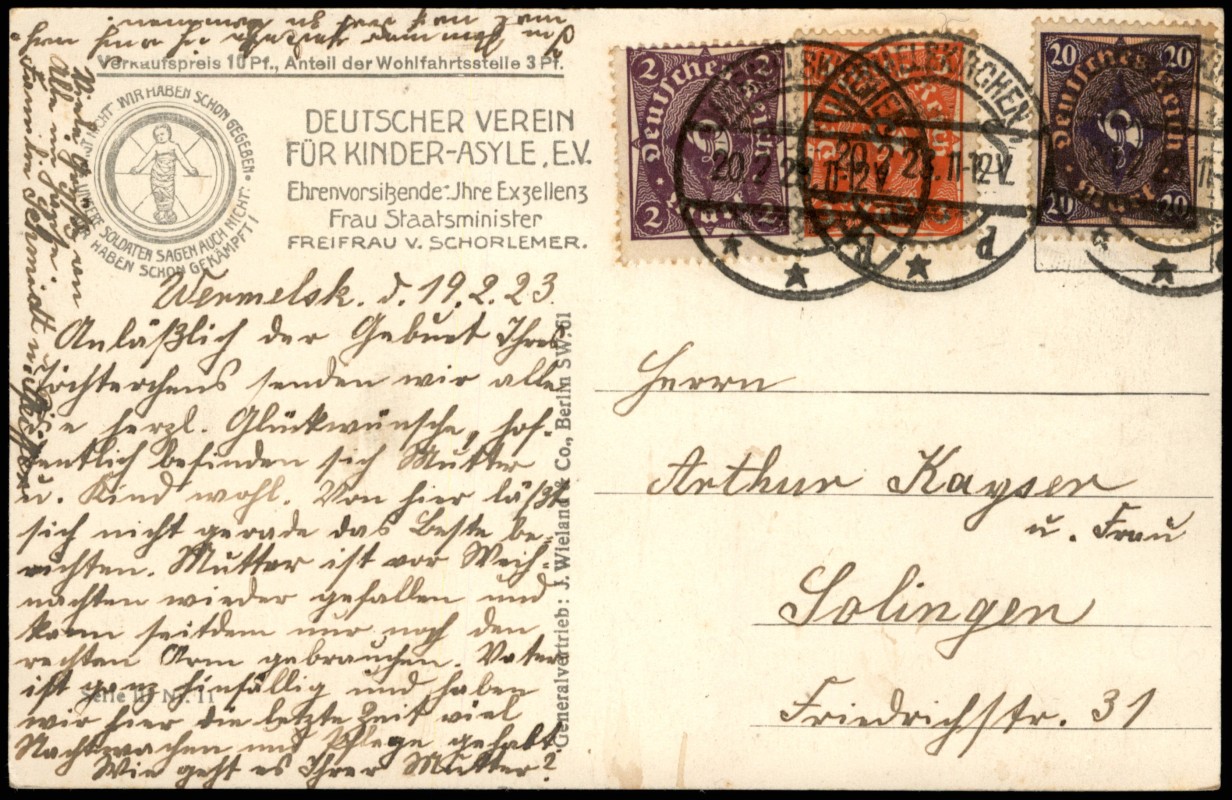 Verkaufspreis 10 Pf., Anteil der Wohlfahrtsstelle 3 Pf.
NICHT WIR HABEN SCHON GEGEBEN
UNSERE SOLDATEN SAGEN AUCH NICHT:
HABEN SCHON GEKÄMPFT!
DEUTSCHER VEREIN
FÜR KINDER-ASYLE, E.V.
Ehrenvorsitzende: Ihre Exzellenz
Frau Staatsminister
FREIFRAU V. SCHORLEMER.
Wermelsk. d. 19.2.23.
Anläßlich der Geburt Ihres
Töchterchens senden wir alle
herzl. Glückwünsche, hof-
fentlich befinden sich Mutter
u. Kind wohl. Von hier läßt
sich nicht gerade das Beste be-
richten. Mutter ist vor Weih-
nachten wieder gefallen und
kann seitdem nur noch den
rechten Arm gebrauchen. Vater
ist ganz hinfällig und haben
wir hier die letzte Zeit viel
Nachtwachen und Pflege gehabt
Wie geht es Ihrer Mutter?
Viele Grüße von
Familie Schmidt
Serie III Nr. 11
Generalvertrieb: J. Wieland & Co., Berlin SW. 61
2 Deutsches Reich 2
2 Mark 2
Reich
20 Deutsches Reich 20
20 Mark 20
WERMELSKIRCHEN
20.2.23.11-12V.
Herrn
Arthur Kayser
u. Frau
Solingen
Friedrichstr. 31